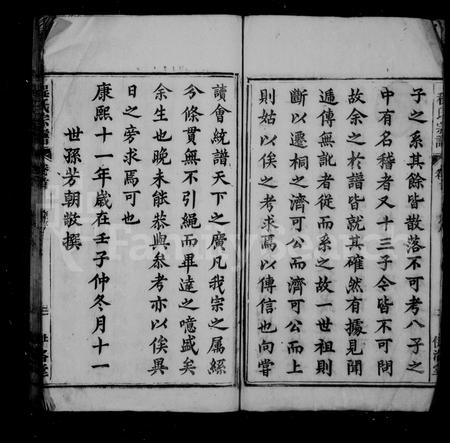 子之系其餘皆散落不可考八子之
中有名稽者又十三子今皆不可問
故余之於譜皆就其確然有據見聞
遞傳無訛者從而系之故一世祖則
斷以遷桐之濟可公而濟可公而上
則姑以俟之考求焉以傳信也向嘗
讀會統譜天下之廣凡我宗之屬縣
分條貫無不引繩而畢達之噫盛矣
余生也晚未能恭與叅考亦以俟異
日之旁求焉可也
康熙十一年歲在壬子仲冬月十一
世孫芳朝敬撰
氏宗譜
卷首
三
FamilySearch